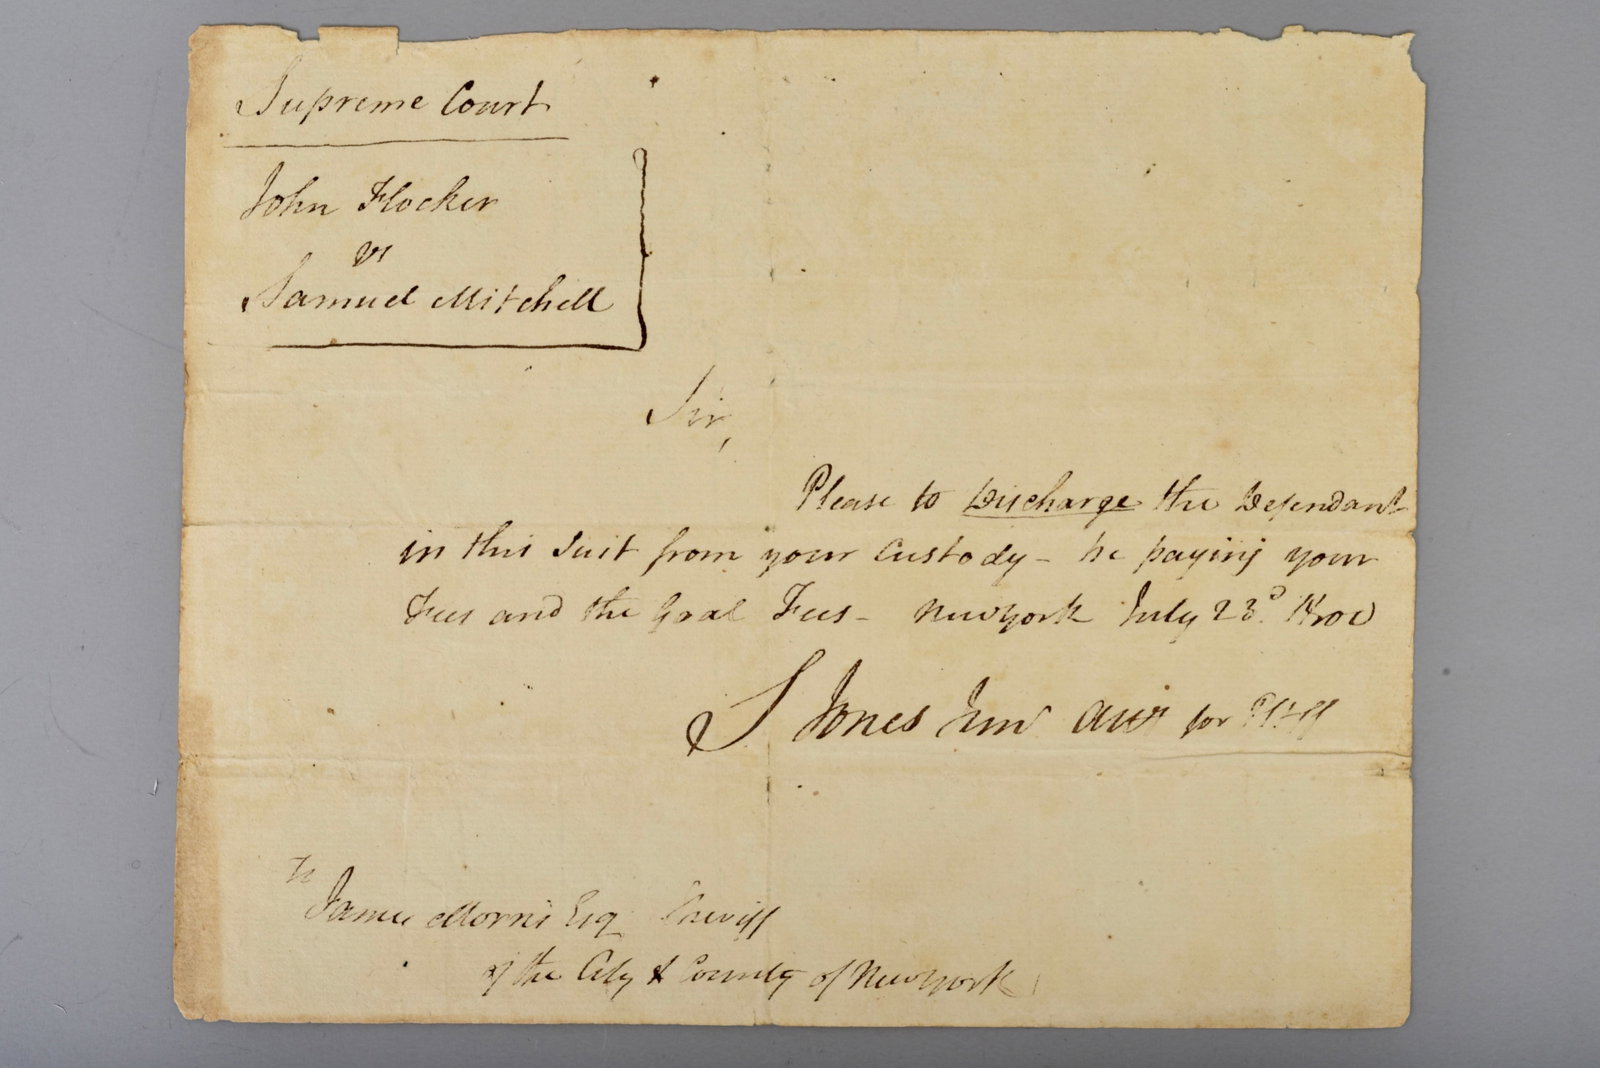 Supreme Court
John Flocker
vs
Samuel Mitchell
Sir,
Please to Discharge the Defendant
in this Suit from your Custody - he paying your
Fees and the Goal Fees - New York July 23d. 1800
S Jones Junr Atty for Pltff
To
James Morris Esq Sheriff
of the City & County of New York